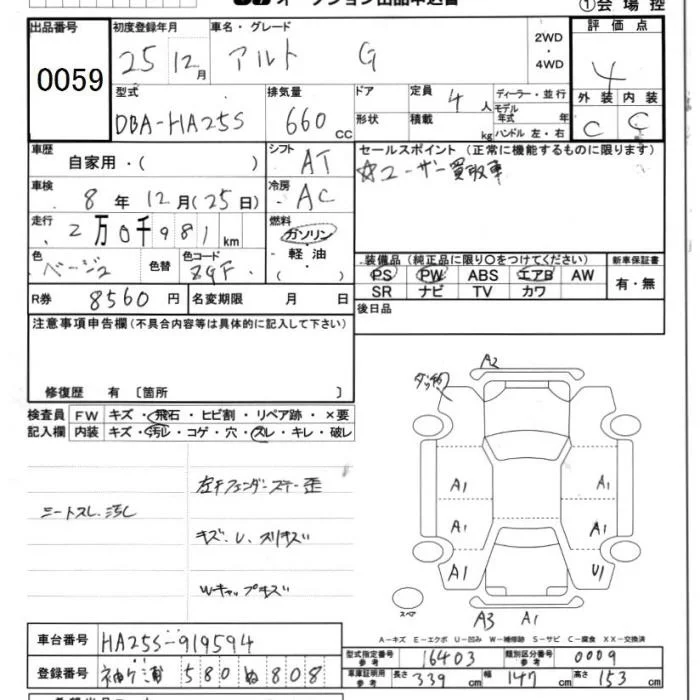 ①会場控
出品番号 初度登録年月 車名・グレード 評価点
0059 25 12月 アルト G 2WD・4WD 4
型式 排気量 ドア 定員 4 人 ディーラー・並行 外装 内装
DBA-HA25S 660 CC 形状 積載 kg モデル年式 年 ハンドル 左・右 C C
車歴 自家用・( ) シフト AT セールスポイント(正常に機能するものに限ります)
☆ユーザー買取車
車検 8年12月(25日) 冷房 AC
走行 2万0千981km 燃料 ガソリン・軽油・( )
色 ベージュ 色替 色コード ZQF 装備品(純正品に限り○をつけてください) 新車保証書
PS PW ABS エアB AW 有・無
R券 8560円 名変期限 月 日 SR ナビ TV カワ
注意事項申告欄(不具合内容等は具体的に記入して下さい) 後日品
修復歴 有 〔箇所 〕
検査員 FW キズ・飛石・ヒビ割・リペア跡・×要
記入欄 内装 キズ・汚レ・コゲ・穴・スレ・キレ・破レ
A2
左Fフェンダーステー歪
シートスレ、汚レ
キズ、U、スリキズ
Wキャップキズ
A1 A1
A1 A1
A1 U1
スペア
A3 A1
A-キズ E-エクボ U-凹み W-補修跡 S-サビ C-腐食 XX-交換済
車台番号 HA25S-919594
型式指定番号 参考 16403 類別区分番号 参考 0009
登録番号 袖ケ浦 580 ぬ 808
車庫証明用 参考 長さ 339 cm 幅 147 cm 高さ 153 cm